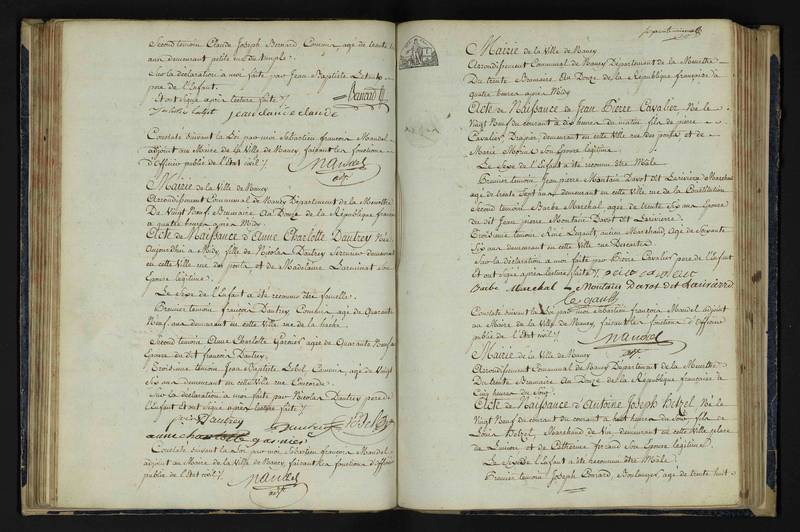 Second temoin Claude Joseph Bernard Commis, agé de trente
ans demeurant petite rue du temple.
Sur la déclaration a moi faite par Jean Baptiste
pere de l'Enfant.
Et ont Signé après lecture faite
Bernard
jean claude claude
Constaté Suivant la Loi par moi Sebastien françois Mandel
adjoint au Maire de la Ville de Nancy faisant les fonctions
d'Officier public de l'Etat civil
Mandel
adjt.
Mairie de la Ville de Nancy
Arrondissement Communal de Nancy Département de la Meurthe
Du Vingt Neuf Brumaire An Douze de la République française
a quatre heures après Midy
Acte de Naissance d'Anne Charlotte Dautrey Née
Aujourdhui a Midy, fille de Nicolas Dautrey Serrurier demeurant
en cette Ville rue des ponts et de Madelaine Son
Epouse légitime.
Le Sexe de l'Enfant a été reconnu être femelle.
Premier temoin françois Dautrey agé de Quarante
Neuf ans demeurant en cette Ville rue de la hache.
Second temoin Anne Charlotte Garnier agée de Quarante Neuf ans
Epouse du dit françois Dautrey
Troisieme temoin Jean Baptiste Lebel Commis, agé de Vingt
Six ans demeurant en cette Ville rue Concorde.
Sur la déclaration a moi faite par Nicolas Dautrey pere de
l'Enfant Et ont Signé après lecture faite
Dautrey
Dautrey Lebel
anne charlotte garnier
Constaté Suivant la Loi par moi Sebastien françois Mandel
adjoint au Maire de la Ville de Nancy, faisant les fonctions d'Officier
public de l'Etat civil
Mandel
adjt.
Mairie de la Ville de Nancy
Arrondissement Communal de Nancy Département de la Meurthe
Du trente Brumaire An Douze de la République française a
quatre heures après Midy
Acte de Naissance de Jean Pierre Cavalier Né le
Vingt Neuf du courant a dix heures du matin fils de pierre
Cavalier Drapier, demeurant en cette Ville rue des ponts et de
Marie Morin Son Epouse légitime.
Le Sexe de l'Enfant a été reconnu être Mâle.
Premier temoin Jean pierre Montain Davot dit Lariviere Marechal
agé de trente Sept ans demeurant en cette Ville rue de la Constitution
Second temoin Barbe Marechal agée de trente Six ans Epouse
du dit Jean pierre Montain Davot dit Lariviere.
Troisieme temoin Legault, ancien Marechal, Agé de Soixante
Six ans demeurant en cette Ville rue Descartes.
Sur la déclaration a moi faite par Pierre Cavalier pere de l'Enfant
Et ont Signé après lecture faite
Barbe Marechal Montain Davot dit Lariviere
le gault
Constaté Suivant la Loi par moi Sebastien françois Mandel adjoint
au Maire de la Ville de Nancy, faisant les fonctions d'Officier
public de l'Etat civil
Mandel
adjt.
Mairie de la Ville de Nancy
Arrondissement Communal de Nancy Département de la Meurthe
Du trente Brumaire An Douze de la République française a
Cinq heures du Soir.
Acte de Naissance d'Antoine Joseph Hetzel Né le
Vingt Neuf du courant a huit heures du Soir, fils de
Louis Hetzel, Marchand de Vin, demeurant en cette Ville place
de et de Catherine Son Epouse légitime.
Le Sexe de l'Enfant a été reconnu être Mâle.
Premier temoin Joseph Boulanger, agé de trente huit